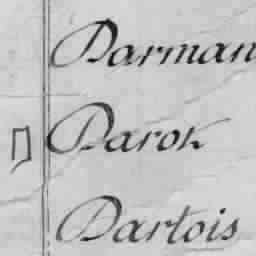 Darman
Darok
Dartois